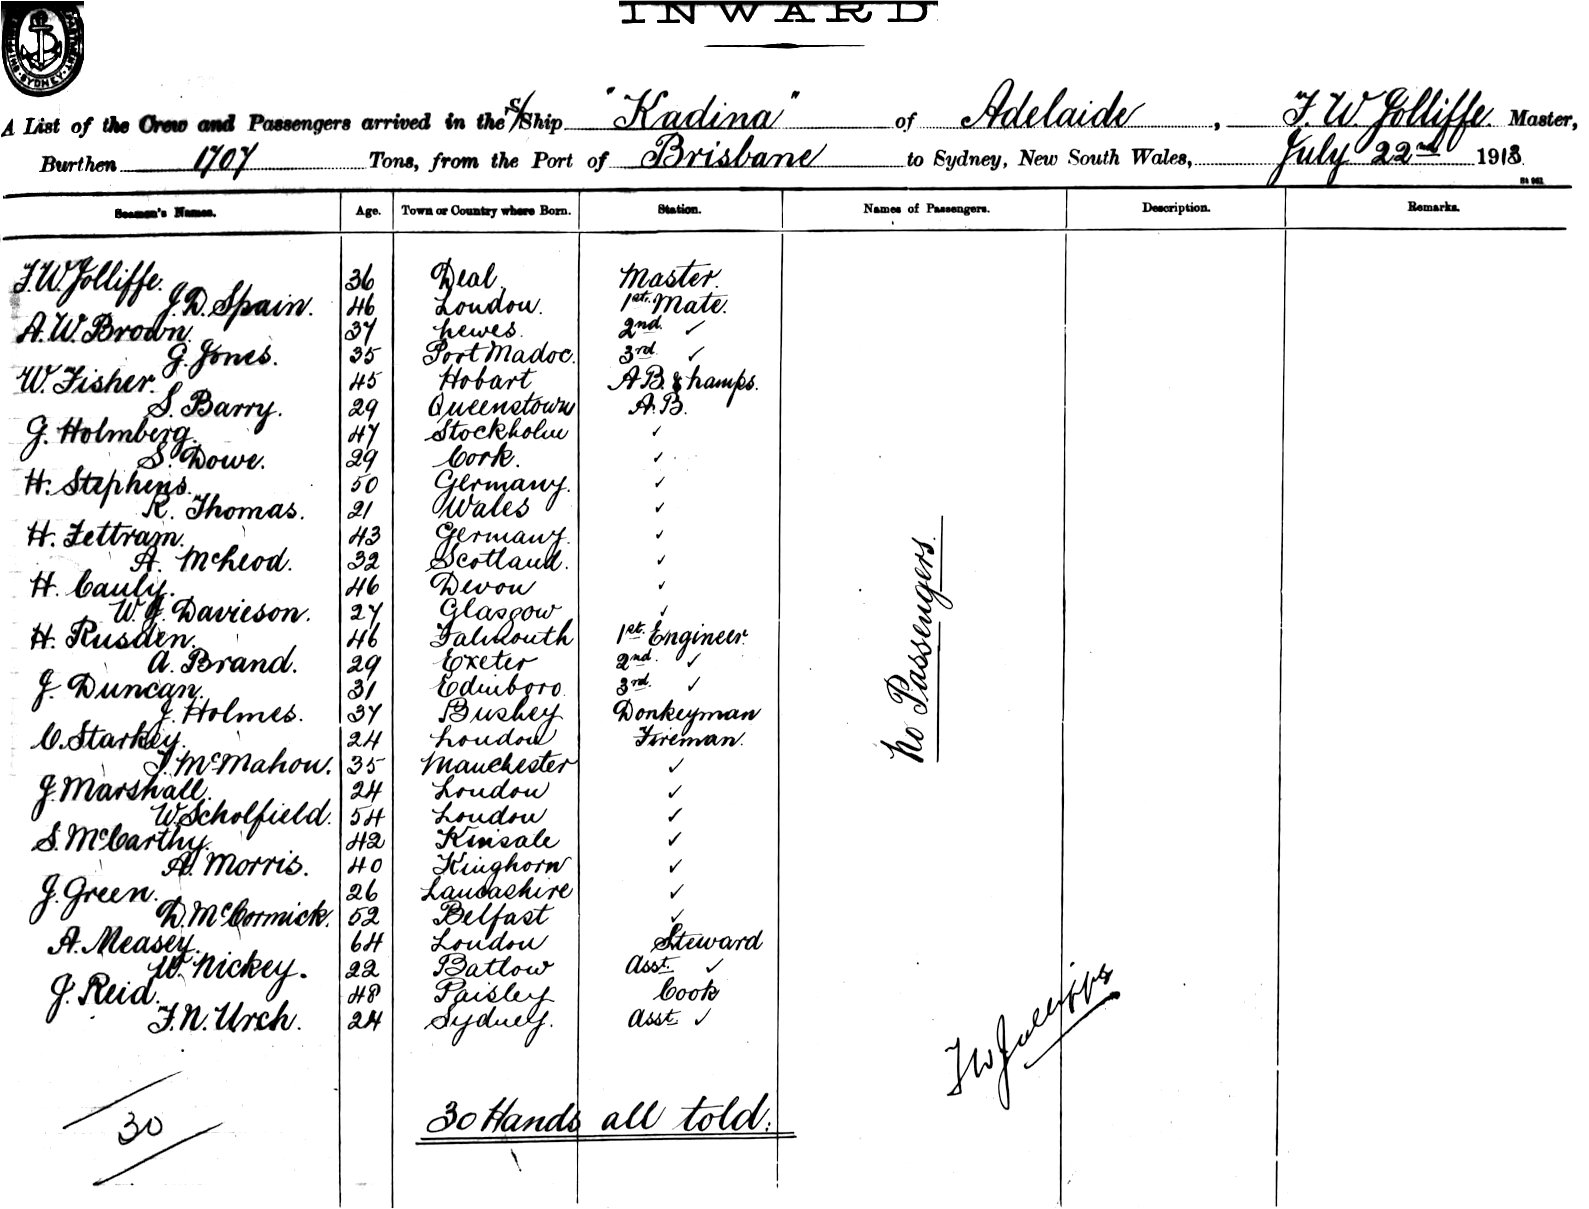 SYDNEY
INWARD
A List of the Crew and Passengers arrived in the S/Ship "Kadina" of Adelaide, F. W. Jolliffe. Master,
Burthen 1707 Tons, from the Port of Brisbane to Sydney, New South Wales, July 22nd 1913
Seamen's Names. Age. Town or Country where Born. Station. Names of Passengers. Description. Remarks.
F. W. Jolliffe. 36 Deal Master.
J. D. Spain. 46 London. 1st. Mate.
A. W. Brown. 37 Lewes. 2nd. ✓
G. Jones. 35 Port Madoc. 3rd. ✓
W. Fisher. 45 Hobart A.B. & Lamps.
S. Barry. 29 Queenstown A.B.
G. Holmberg. 47 Stockholm ✓
S. Dowe. 29 Cork. ✓
H. Stephens. 50 Germany. ✓
R. Thomas. 21 Wales ✓
H. Fettram. 43 Germany. ✓
A. McLeod. 32 Scotland. ✓
H. Cauly. 46 Devon ✓
W. J. Davieson. 27 Glasgow ✓
H. Rusden. 46 Falmouth 1st. Engineer.
A. Brand. 29 Exeter 2nd. ✓
J. Duncan. 31 Edinboro. 3rd. ✓
J. Holmes. 37 Bushey Donkeyman
C. Starkey. 24 London Fireman.
J. McMahon. 35 Manchester ✓
J. Marshall. 24 London ✓
W. Scholfield. 54 London ✓
S. McCarthy. 42 Kinsale ✓
A. Morris. 40 Kinghorn ✓
J. Green. 26 Lancashire ✓
D. McCormick. 52 Belfast ✓
A. Measey. 64 London Steward
W. Nickey. 22 Batlow Asst. ✓
J. Reid. 48 Paisley Cook
F. N. Urch. 24 Sydney. Asst. ✓
No Passengers.
F W Jolliffe
30
30 Hands all told.